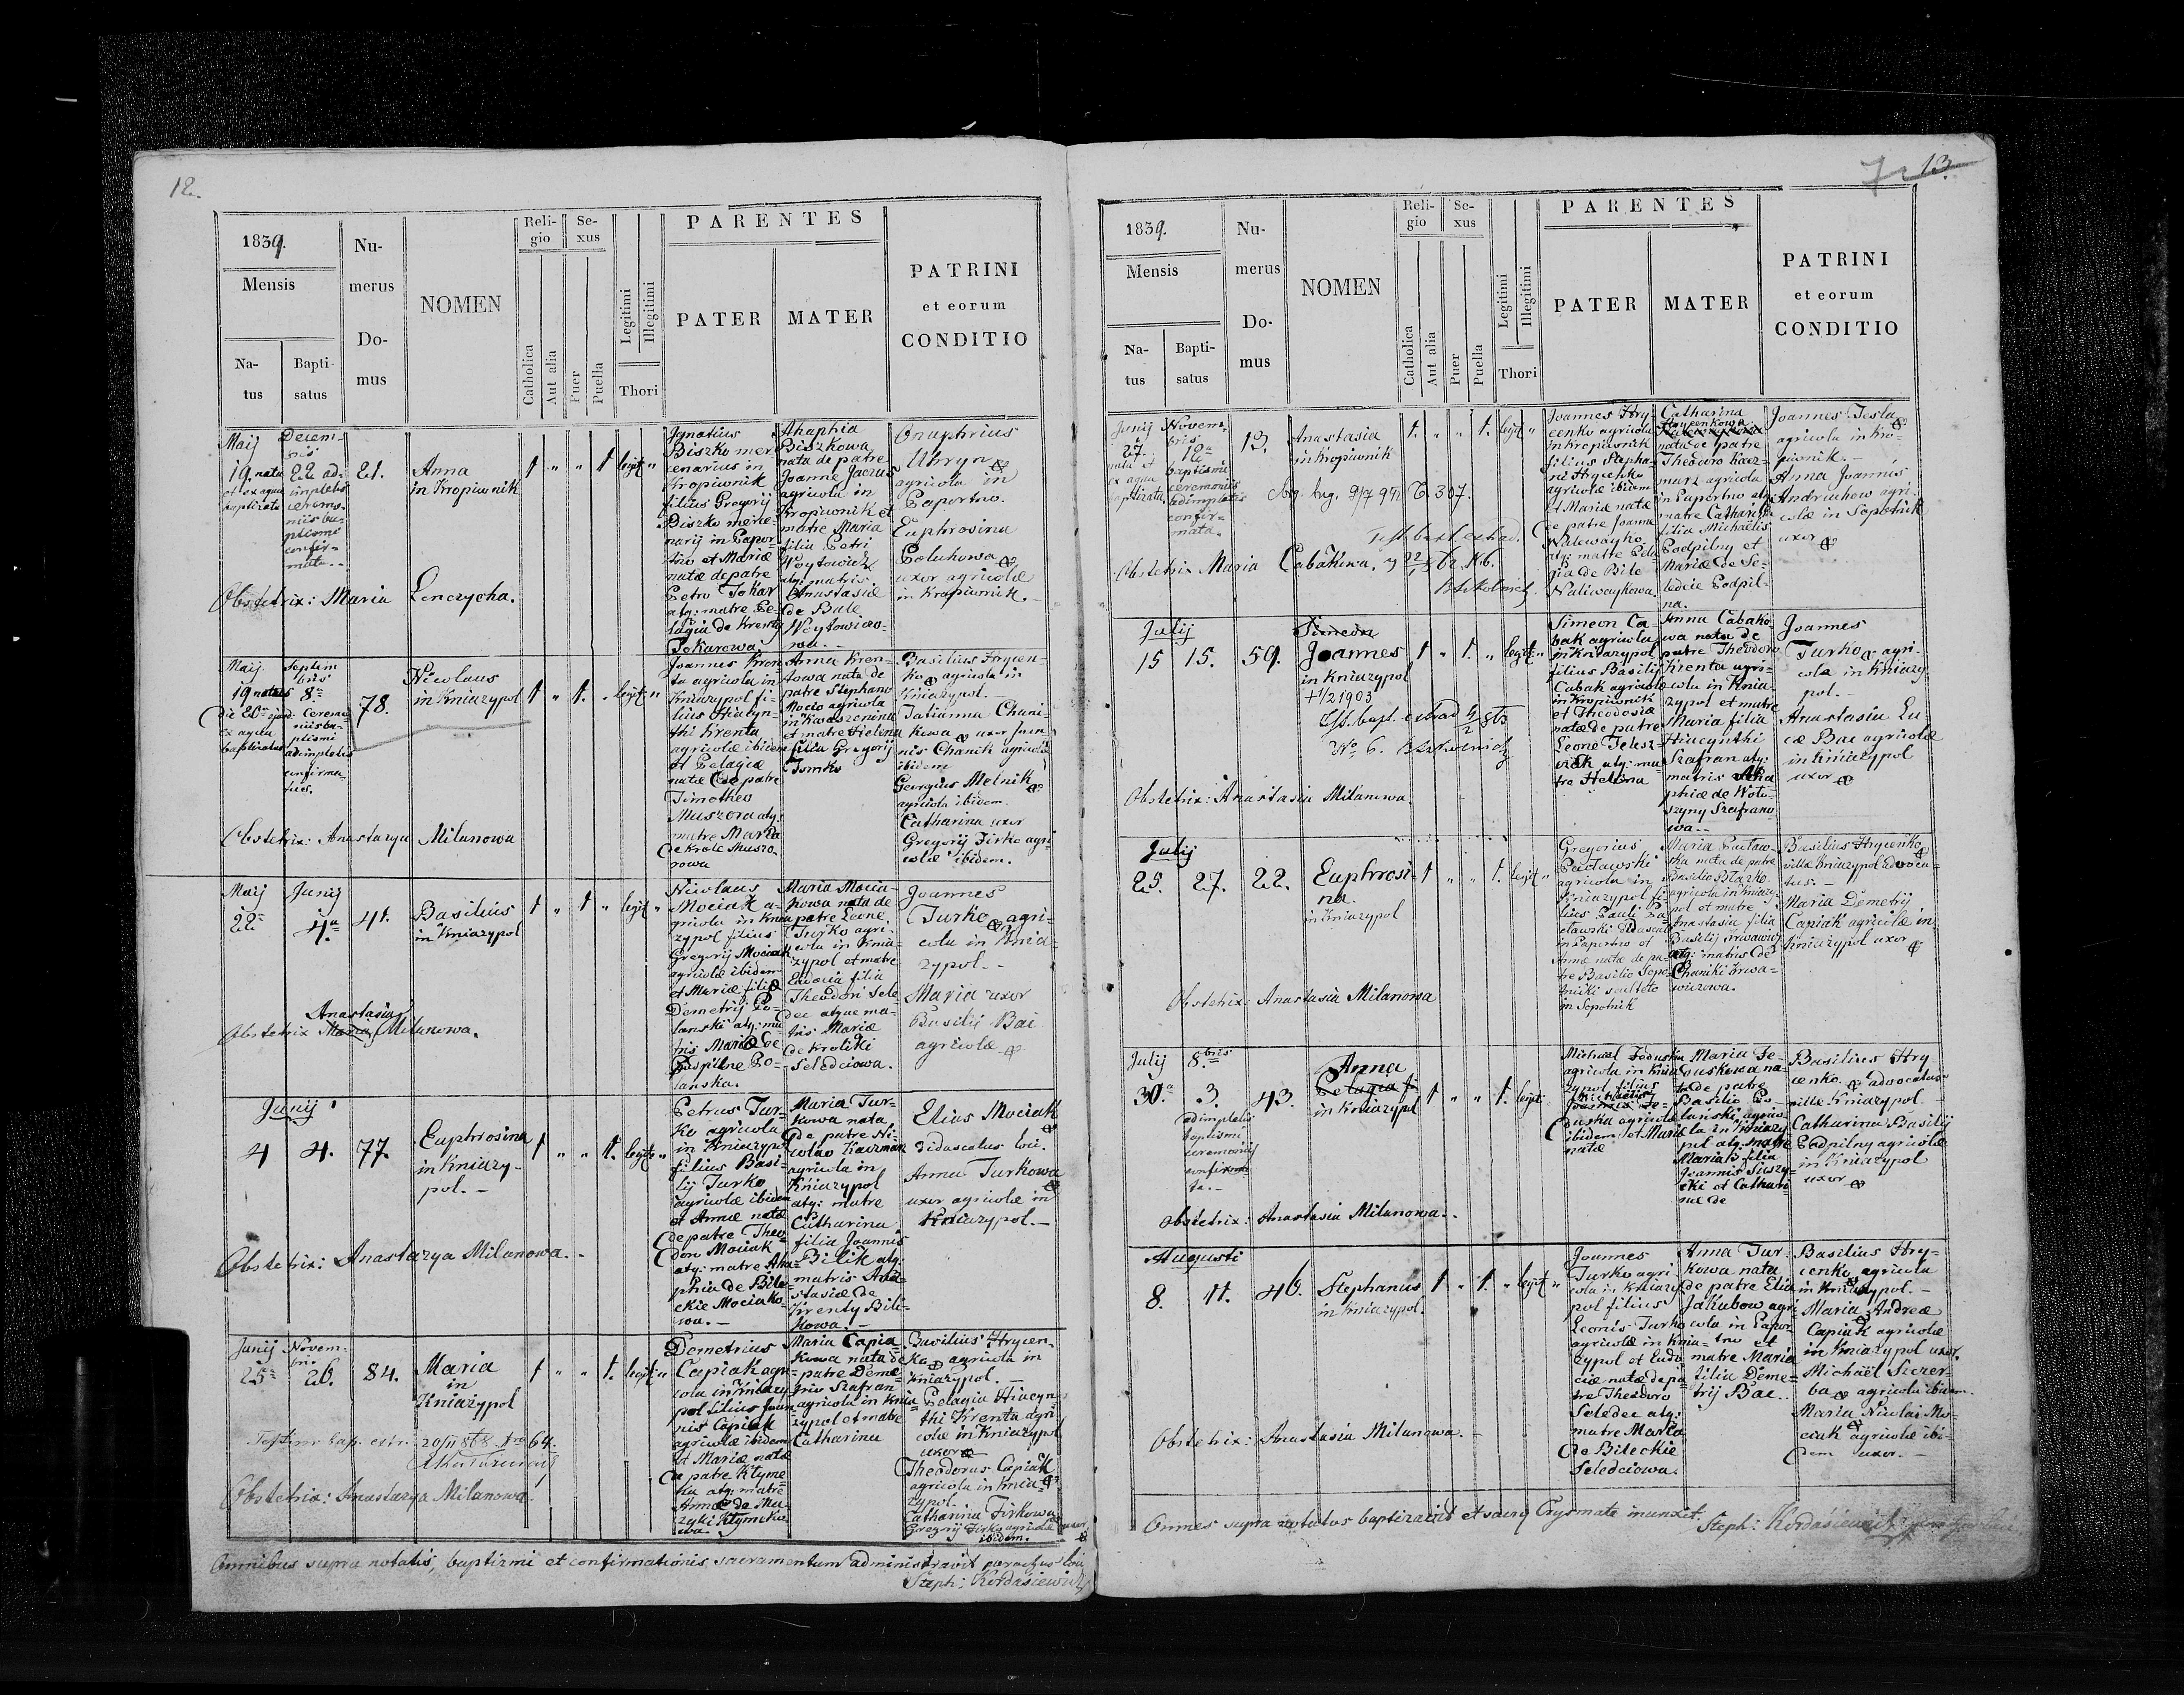 12.
1839.
Mensis
Na-
tus
Bapti-
satus
Nu-
merus
Do-
mus
NOMEN
Reli-
gio
Catholica
Aut alia
Se-
xus
Puer
Puella
Legitimi
Illegitimi
Thori
PARENTES
PATER
MATER
PATRINI
et eorum
CONDITIO
Maij
19 nata
et ex aqua
baptizata
Decem-
bris
22 ad-
impletis
ceremo-
niis ba-
ptismi
confir-
mata.
21.
Anna
in Kropiwnik
1 " " 1 legit "
Ignatius
Biszko mer-
cenarius in
Kropiwnik
filius Gregorij
Biszko merce-
narij in Papor-
tno et Mariæ
natæ de patre
Petro Tokar
atq: matre Pe-
lagia de Krenty
Tokarowa.
Ahaphia
Biszkowa
nata de patre
Joanne Jaczus
agricola in
Kropiwnik et
matre Maria
filia Petri
Woytowicz
atq: matris
Anastasiæ
de Bale
Woytowiczo-
wa.
Onuphrius
Uhryn
agricola in
Paportno.
Euphrosina
Poluhowa
uxor agricolæ
in Kropiwnik.
Obstetrix: Maria Lenczycha.
Maij
19 natus
die 20
ex aqua
baptizatus
Septem
bris
8a
ceremo
niis ba-
ptismi
adimpletis
confirma
tus.
78.
Nicolaus
in Kniazypol
1 " 1. " legit "
Joannes Kren
ta agricola in
Kniazypol fi-
lius Hiacyn-
thi Krenta
agricolæ ibidem
et Pelagiæ
natæ de patre
Timotheo
Muszora atq:
matre Maria
de Krole Muszo-
rowa
Anna Kren-
towa nata de
patre Stephano
Mocio agricola
in Kwaszenina
et matre Helena
filia Gregorij
Tomko
Basilius Hrycen-
ko agricola in
Kniazypol.
Tatianna Chani-
kowa uxor Joan-
nis Chanik agricolæ
ibidem
Georgius Melnik
agricola ibidem.
Catharina uxor
Gregorij Firko agri-
colæ ibidem.
Obstetrix: Anastazya Milanowa
Maij
22
Junij
4a
41.
Basilius
in Kniazypol
1 " 1 " legit "
Nicolaus
Mociak a-
gricola in Knia
zypol filius
Gregorij Mociak
agricolæ ibidem
et Mariæ filiæ
Demetrij Po-
lanski atq: ma
tris Mariæ de
Pospilne Po-
lanska.
Maria Mocia-
kowa nata de
patre Leone
Turko agri-
cola in Knia-
zypol et matre
Eudocia filia
Theodori Sele-
dec atque ma-
tris Mariæ
de Kroliki
Seledciowa.
Joannes
Turko agri-
cola in Knia-
zypol.
Maria uxor
Basilij Bai
agricolæ
Anastasia
Obstetrix Maria Milanowa.
Junij
4
4.
77.
Euphrosina
in Kniazy-
pol.
1 " " 1. legit "
Petrus Tur-
ko agricola
in Kniazypol
filius Basi-
lij Turko
agricolæ ibidem
et Annæ natæ
de patre Theo
doro Mociak
atq: matre Aha-
phia de Bile-
ckie Mociako-
wa.
Maria Tur-
kowa nata
de patre Ni-
colao Kaczmar
agricola in
Kniazypol
atq: matre
Catharina
filia Joannis
Bilik atq:
matris Ana-
stasiæ de
Krenty Bili-
kowa.
Elias Mociak
didascalus loci.
Anna Turkowa
uxor agricolæ in
Kniazypol.
Obstetrix: Anastazya Milanowa.
Junij
25
Novem-
bris
26.
84.
Maria
in
Kniazypol
1 " " 1. legit "
Demetrius
Capiak agri-
cola in Kniazy-
pol filius Joan
nis Capiak
agricolæ ibidem
et Mariæ natæ
de patre Klyme
ko atq: matre
Anna de Mu-
zyki Klymko
wa.
Maria Capia
kowa nata de
patre Deme-
trio Szafran
agricola in Knia
zypol et matre
Catharina
Basilius Hrycen-
ko agricola in
Kniazypol.
Pelagia Hiacyn-
thi Krenta agri
colæ in Kniazypol
uxor
Theodorus Capiak
agricola in Knia-
zypol.
Catharina Firkowa
Gregorij Firko agricolæ uxor
ibidem.
20/11 868 Nro 64.
Obstetrix: Anastazya Milanowa.
Omnibus supra notatis, baptizmi et confirmationis sacramentum administravit parochus loci
Steph: Kordasiewicz
7
13.
1839.
Mensis
Na-
tus
Bapti-
satus
Nu-
merus
Do-
mus
NOMEN
Reli-
gio
Catholica
Aut alia
Se-
xus
Puer
Puella
Legitimi
Illegitimi
Thori
PARENTES
PATER
MATER
PATRINI
et eorum
CONDITIO
Junij
27.
nata et
ex aqua
baptizata.
Novem-
bris
12
baptismi
ceremoniis
adimpletis
confir-
mata.
13.
Anastasia
in Kropiwnik
1. " " 1. legit "
Joannes Hry-
cenko agricola
in Kropiwnik
filius Stepha-
ni Hrycenko
agricolæ ibidem
et Mariæ natæ
de patre Joanne
Naliwayko
atq: matre Pela
gia de Bile
Naliwaykowa.
Catharina
Hrycenkowa
nata de patre
Theodoro Kacz-
marz agricola
in Paportno atq:
matre Catharina
filia Michaelis
Podpilny et
Mariæ de Se-
ledcie Podpil-
na.
Joannes Tesla
agricola in Kro-
piwnik.
Anna Joannis
Andruchow agri-
colæ in Sopotnik
uxor
307.
Test. bapt. extrad.
Obstetrix Maria Cabakowa.
Julij
15
15.
59.
Simeon
Joannes
in Kniazypol
+ 1/2 1903
1 " 1. " legit "
Test. bapt. extrad.
No 6.
Simeon Ca-
bak agricola
in Kniazypol
filius Basilij
Cabak agricolæ
in Kropiwnik
et Theodosiæ
natæ de patre
Leone Felusz-
czak atq: ma-
tre Helena
Anna Cabako
wa nata de
patre Theodoro
Krenta agri-
cola in Knia-
zypol et matre
Maria filia
Hiacynthi
Szafran atq:
matris Aha
phiæ de Woto-
szyny Szafrano
wa.
Joannes
Turko agri-
cola in Kniazy
pol.
Anastasia Lu-
cæ Bac agricolæ
in Kniazypol
uxor
Obstetrix: Anastasia Milanowa.
Julij
25.
27.
22.
Euphrosi-
na
in Kniazypol
1 " " 1. legit "
Gregorius
Pactawski
agricola in
Kniazypol fi-
lius Pauli Pa-
ctawski didascali
in Paportno et
Annæ natæ de pa-
tre Basilio Sopo-
tnicki sculteto
in Sopotnik
Maria Pactaw-
ska nata de patre
Basilio Blazko
agricola in Kniazy-
pol et matre
Anastasia filia
Basilij Krwawicz
atq: matris de
Chaniki Krwa-
wiczowa.
Basilius Hrycenko
villæ Kniazypol advoca-
tus.
Maria Demetrij
Capiak agricolæ in
Kniazypol uxor
Obstetrix: Anastasia Milanowa
Julij
30.
8bris
3.
adimpletis
baptismi
ceremoniis
confirma
ta.
43.
Anna
Pelagia
in Kniazypol
1 " " 1. legit
Michael Feduska
agricola in Knia
zypol filius
Michaelis
Feduska agricolæ
ibidem et Mariæ
natæ
Maria Fe-
duskowa na-
ta de patre
Basilio Po-
lanski agrico-
la in Kniazy
pol atq: matre
Maria filia
Joannis Suszy-
cki et Cathari-
næ de
Basilius Hry-
cenko advocatus
villæ Kniazypol.
Catharina Basilij
Podpilny agricolæ
in Kniazypol
uxor
Obstetrix: Anastasia Milanowa.
Augusti
8.
11.
46.
Stephanus
in Kniazypol.
1 " 1. " legit "
Joannes
Turko agri-
cola in Kniazy
pol filius
Leonis Turko
agricolæ in Knia-
zypol et Eudo
ciæ natæ de pa
tre Theodoro
Seledec atq:
matre Maria
de Bileckie
Seledciowa.
Anna Tur-
kowa nata
de patre Elia
Jakubow agri-
cola in Papor-
tno et
matre Maria
filia Deme-
trij Bac.
Basilius Hry-
cenko agricola
in Kniazypol.
Maria Andreæ
Capiak agricolæ
in Kniazypol uxor.
Michaël Szczer-
ba agricola ibidem.
Maria Nicolai Mo-
ciak agricolæ ibi-
dem uxor.
Obstetrix: Anastasia Milanowa.
Omnes supra notatos baptizavit et sacro Crysmate inunxit
Steph: Kordasiewicz